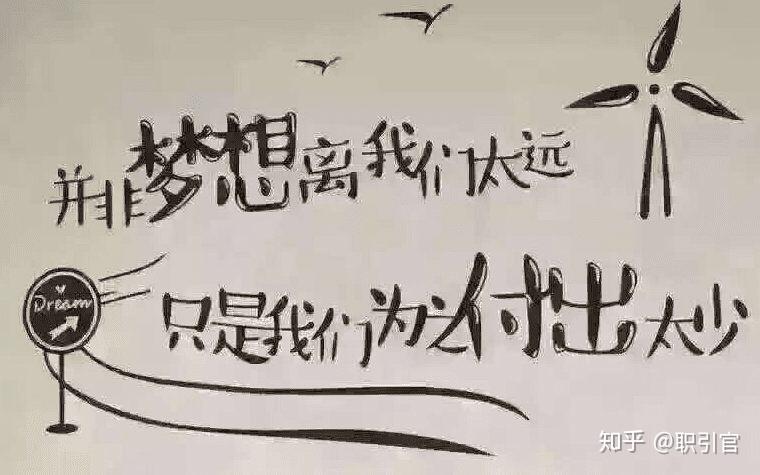 并非梦想离我们太远
Dream
只是我们为之付出太少
知乎 @职引官